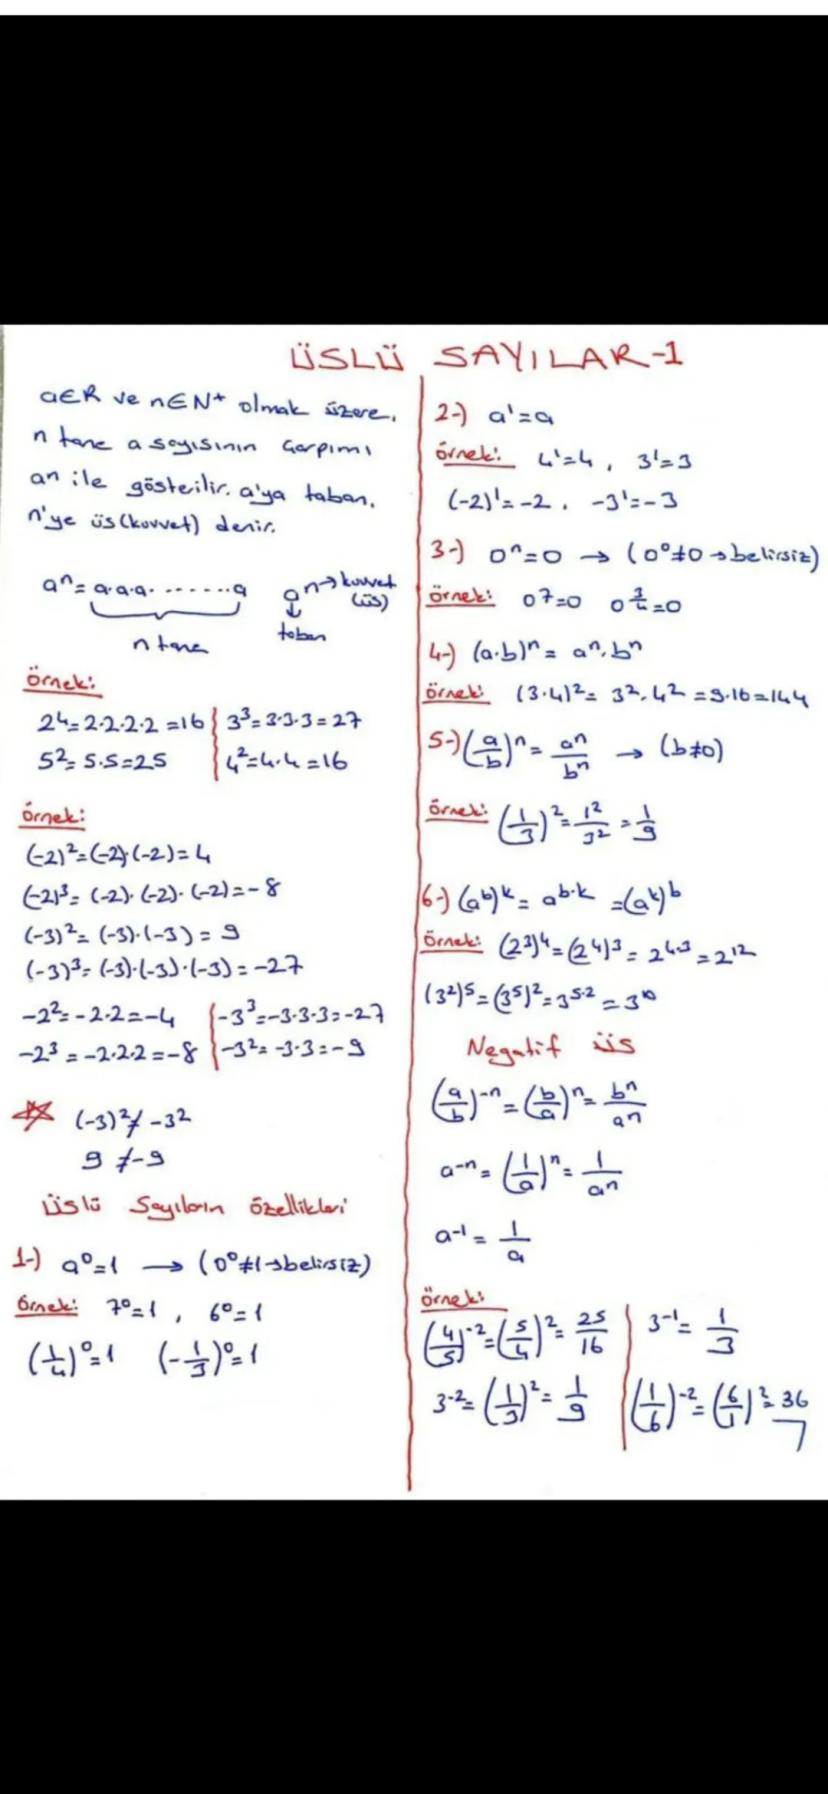 ÜSLÜ SAYILAR-1
a∈R ve n∈N⁺ olmak üzere,
n tane a sayısının çarpımı
an ile gösterilir. a'ya taban,
n'ye üs (kuvvet) denir.
aⁿ = a·a·a· ······· a
n tane
aⁿ → kuvvet (üs)
↓
taban
örnek:
2⁴ = 2·2·2·2 = 16 | 3³ = 3·3·3 = 27
5² = 5·5 = 25 | 4² = 4·4 = 16
örnek:
(-2)² = (-2)·(-2) = 4
(-2)³ = (-2)·(-2)·(-2) = -8
(-3)² = (-3)·(-3) = 9
(-3)³ = (-3)·(-3)·(-3) = -27
-2² = -2·2 = -4 | -3³ = -3·3·3 = -27
-2³ = -2·2·2 = -8 | -3² = -3·3 = -9
(-3)² ≠ -3²
9 ≠ -9
Üslü Sayıların özellikleri
1-) a⁰ = 1 → (0⁰ ≠ 1 → belirsiz)
örnek: 7⁰ = 1 , 6⁰ = 1
(1/4)⁰ = 1 (-1/3)⁰ = 1
2-) a¹ = a
örnek: 4¹ = 4 , 3¹ = 3
(-2)¹ = -2 , -3¹ = -3
3-) 0ⁿ = 0 → (0⁰ ≠ 0 → belirsiz)
örnek: 0⁷ = 0
4-) (a·b)ⁿ = aⁿ·bⁿ
örnek: (3·4)² = 3²·4² = 9·16 = 144
5-) (a/b)ⁿ = aⁿ/bⁿ → (b ≠ 0)
örnek: (1/3)² = 1²/3² = 1/9
6-) (aᵇ)ᵏ = aᵇ·ᵏ = (aᵏ)ᵇ
örnek: (2³)⁴ = (2⁴)³ = 2⁴·³ = 2¹²
(3²)⁵ = (3⁵)² = 3⁵·² = 3¹⁰
Negatif üs
(a/b)⁻ⁿ = (b/a)ⁿ = bⁿ/aⁿ
a⁻ⁿ = (1/a)ⁿ = 1/aⁿ
a⁻¹ = 1/a
örnek:
(4/5)⁻² = (5/4)² = 25/16 | 3⁻¹ = 1/3
3⁻² = (1/3)² = 1/9 | (1/6)⁻² = (6/1)² = 36